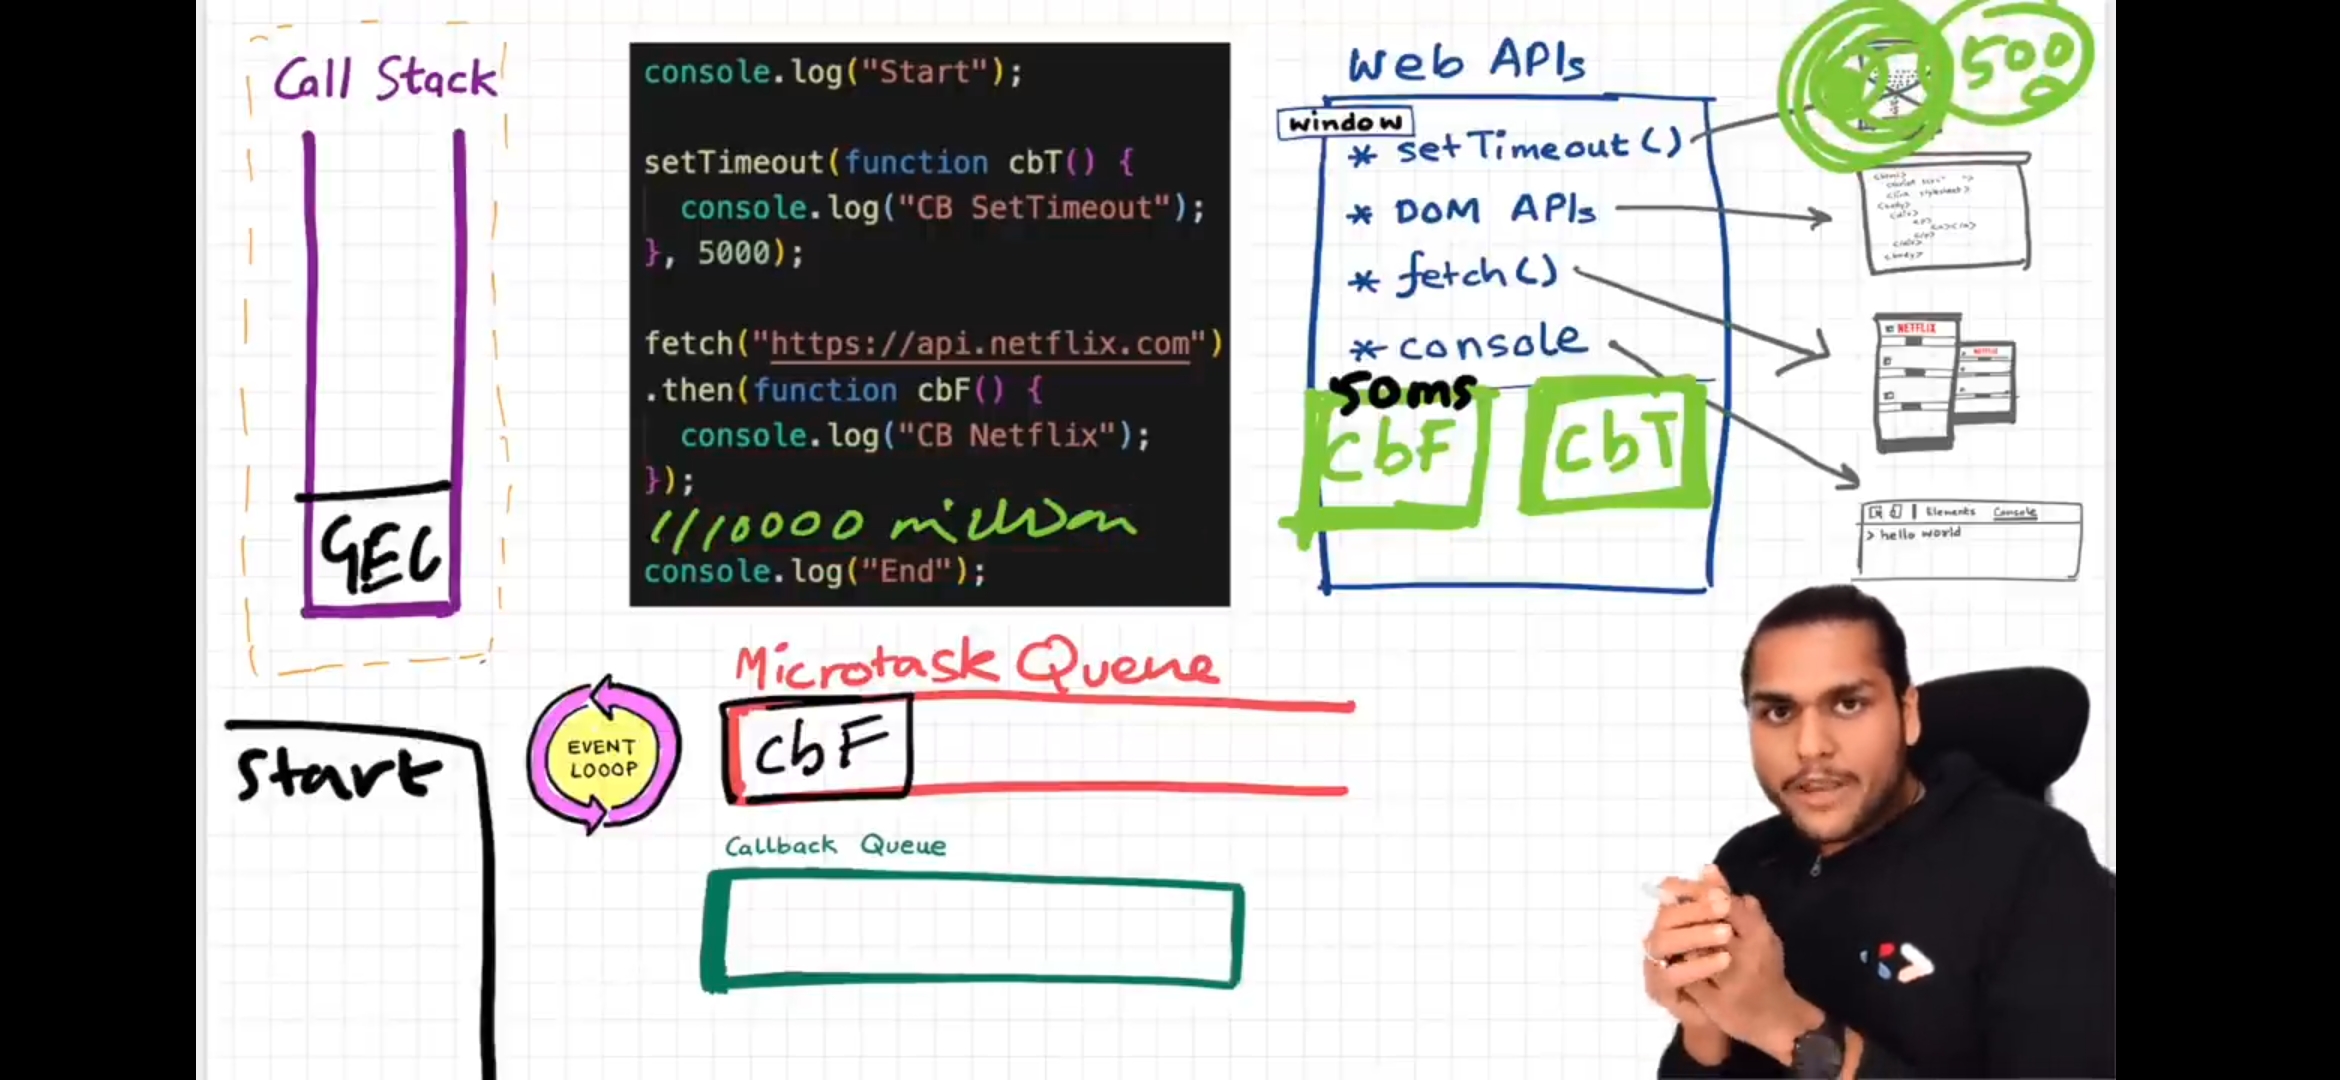 Call Stack
GEC
console.log("Start");
setTimeout(function cbT() {
console.log("CB SetTimeout");
}, 5000);
fetch("https://api.netflix.com")
.then(function cbF() {
console.log("CB Netflix");
});
console.log("End");
Web APIs
window
* setTimeout()
* DOM APIs
* fetch()
* console
50ms
cbF
cbT
500
NETFLIX
NETFLIX
Elements Console
> hello world
Start
EVENT
LOOOP
Microtask Queue
cbF
Callback Queue